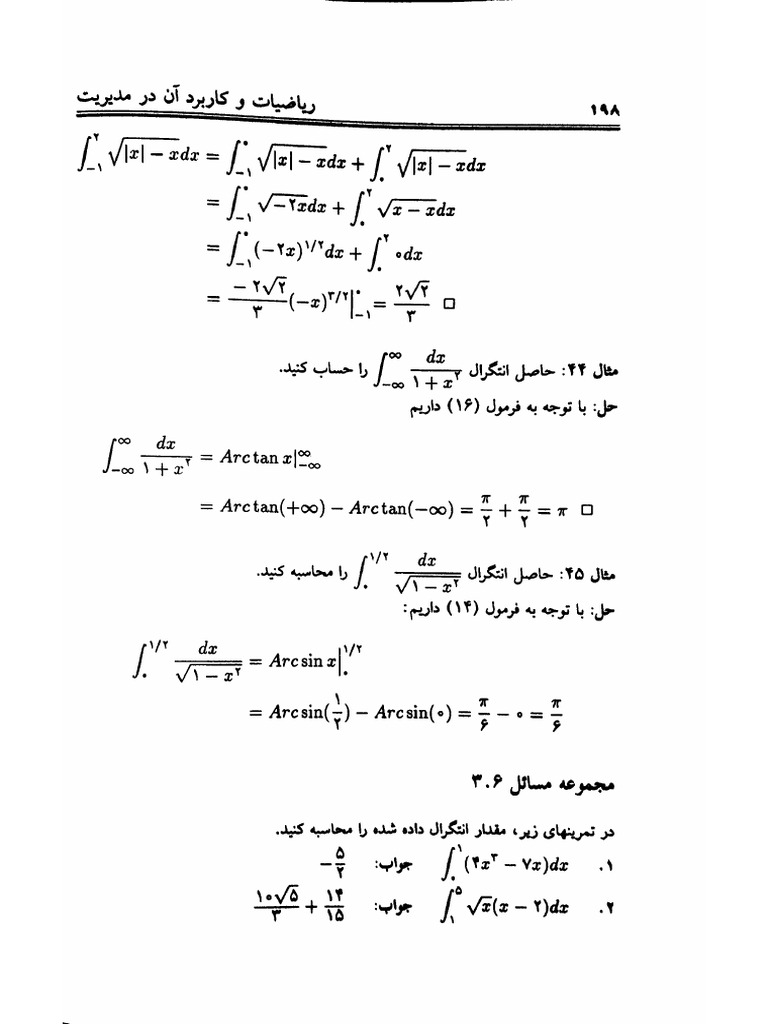 ۱۹۸ ریاضیات و کاربرد آن در مدیریت
∫_{-۱}^{۲} √(|x| − x)dx = ∫_{-۱}^{۰} √(|x| − x)dx + ∫_{۰}^{۲} √(|x| − x)dx
= ∫_{-۱}^{۰} √(−۲x)dx + ∫_{۰}^{۲} √(x − x)dx
= ∫_{-۱}^{۰} (−۲x)^{۱/۲}dx + ∫_{۰}^{۲} ۰dx
= (−۲√۲)/۳ (−x)^{۳/۲}|_{-۱}^{۰} = (۲√۲)/۳ □
مثال ۴۴: حاصل انتگرال ∫_{-∞}^{∞} dx/(۱ + x^۲) را حساب کنید.
حل: با توجه به فرمول (۱۶) داریم
∫_{-∞}^{∞} dx/(۱ + x^۲) = Arctan x|_{-∞}^{∞}
= Arctan(+∞) − Arctan(−∞) = π/۲ + π/۲ = π □
مثال ۴۵: حاصل انتگرال ∫_{۰}^{۱/۲} dx/√(۱ − x^۲) را محاسبه کنید.
حل: با توجه به فرمول (۱۴) داریم:
∫_{۰}^{۱/۲} dx/√(۱ − x^۲) = Arcsin x|_{۰}^{۱/۲}
= Arcsin(۱/۲) − Arcsin(۰) = π/۶ − ۰ = π/۶
مجموعه مسائل ۳.۶
در تمرینهای زیر، مقدار انتگرال داده شده را محاسبه کنید.
۱. ∫_{۰}^{۱} (۴x^۳ − ۷x)dx جواب: −۵/۲
۲. ∫_{۱}^{۵} √x(x − ۲)dx جواب: (۱۰√۵)/۳ + ۱۴/۱۵